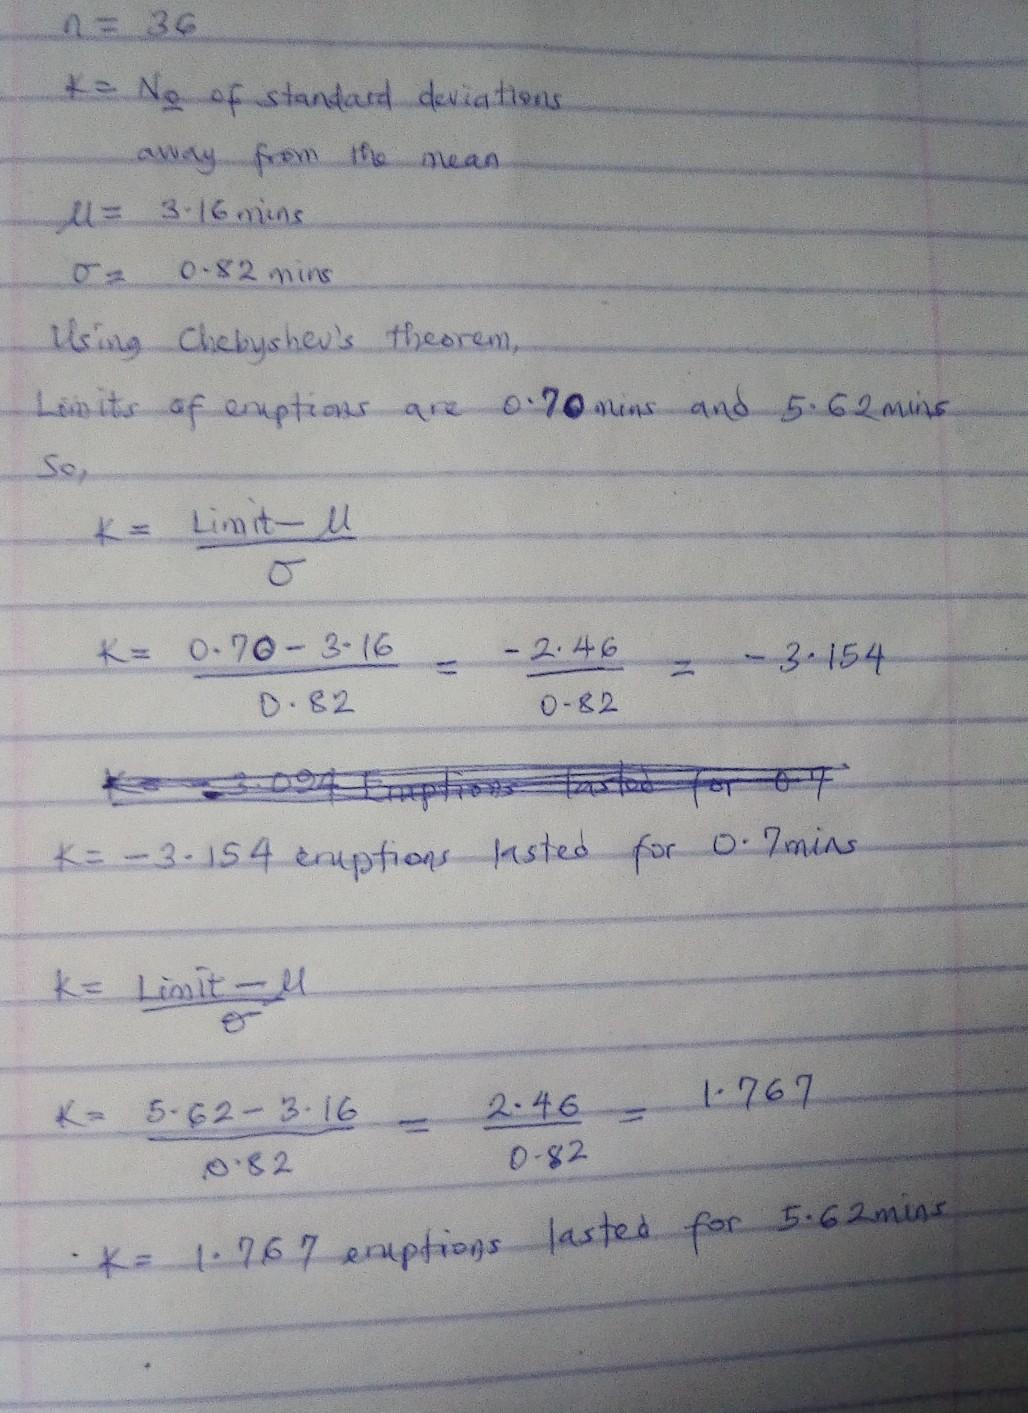 n = 36
K = No of standard deviations
away from the mean
μ = 3.16 mins
σ = 0.82 mins
Using Chebyshev's theorem,
Limits of eruptions are 0.70 mins and 5.62 mins
So,
K = Limit - μ
σ
K = 0.70 - 3.16 = -2.46 = -3.154
0.82 0.82
K = -3.094 Eruptions lasted for 0.7
K = -3.154 eruptions lasted for 0.7mins
K = Limit - μ
σ
K = 5.62 - 3.16 = 2.46 = 1.767
0.82 0.82
K = 1.767 eruptions lasted for 5.62mins